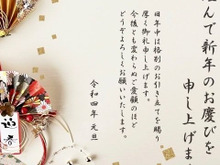 んで新年のお慶びを
申し上げま
旧年中は格別のお引き立てを賜り
厚く御礼申し上げます。
今後とも変わらぬご愛顧のほど
どうぞよろしくお願いいたします。
令和四年 元旦